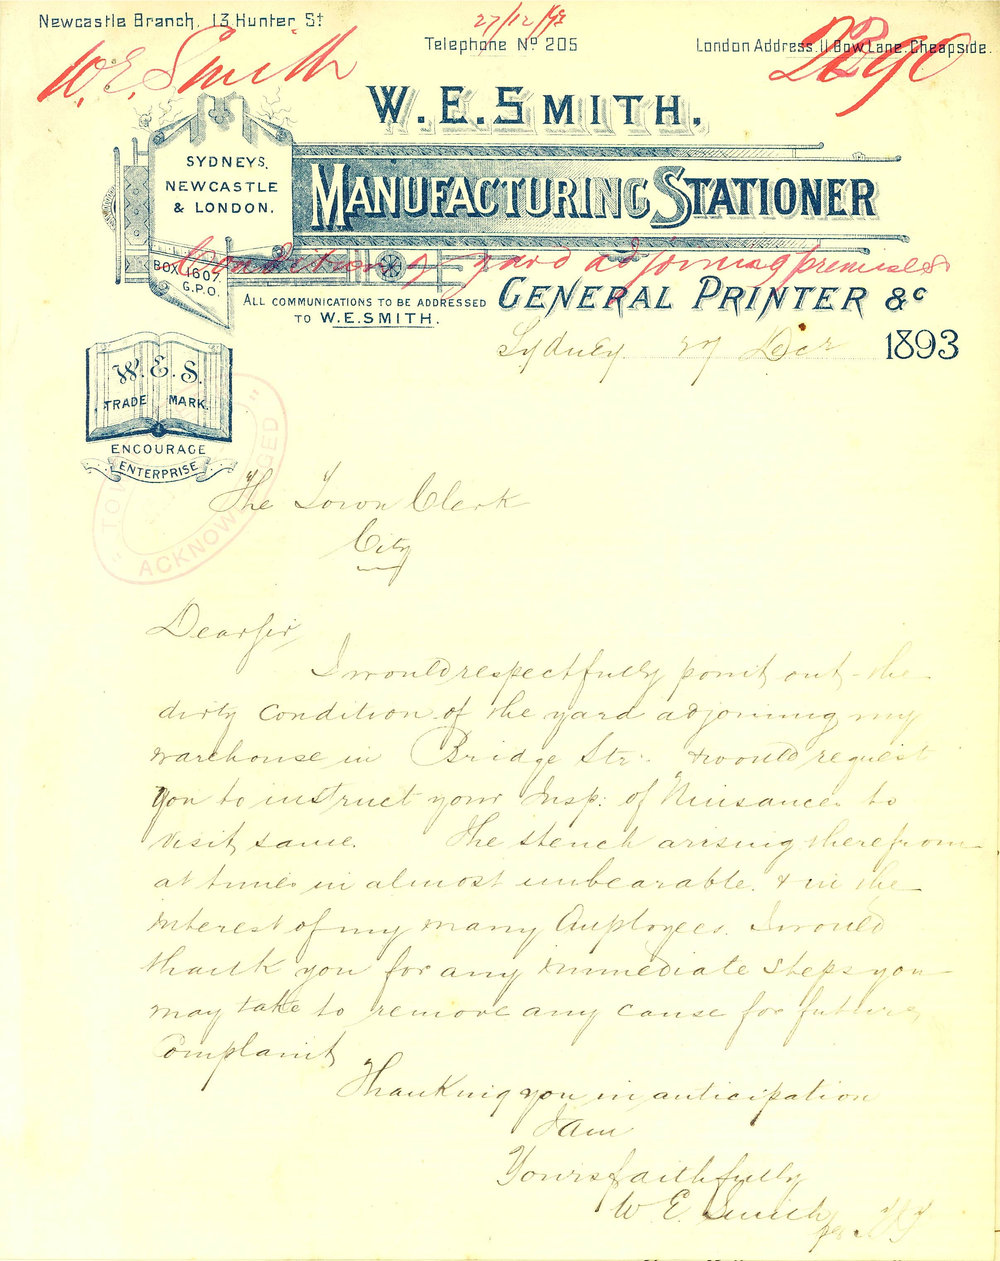 Newcastle Branch, 13 Hunter St
27/12/93
Telephone No 205
London Address. 11 Bow Lane. Cheapside.
W. E. Smith
2290
W. E. SMITH,
SYDNEY,
NEWCASTLE
& LONDON.
MANUFACTURING STATIONER
Condition of yard adjoining premises
BOX 1607.
G.P.O.
ALL COMMUNICATIONS TO BE ADDRESSED
TO W.E.SMITH.
GENERAL PRINTER &c
Sydney 27 Dec 1893
W. E. S.
TRADE MARK.
ENCOURAGE
ENTERPRISE
ACKNOWLEDGED
The Town Clerk
City
Dear Sir,
I would respectfully point out the
dirty condition of the yard adjoining my
warehouse in Bridge Str. & would request
you to instruct your Insp: of Nuisances to
visit same. The stench arising therefrom
at times in almost unbearable. & in the
interest of my many Employees. I would
thank you for any immediate steps you
may take to remove any cause for future
Complaint
Thanking you in anticipation
I am
Yours faithfully
W. E. Smith
per